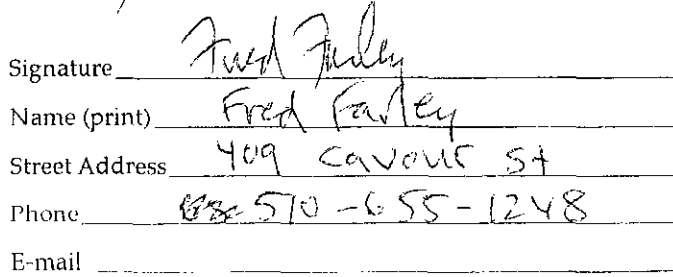 Signature Fred Farley
Name (print) Fred Farley
Street Address 409 Cavour St
Phone 510-655-1248
E-mail